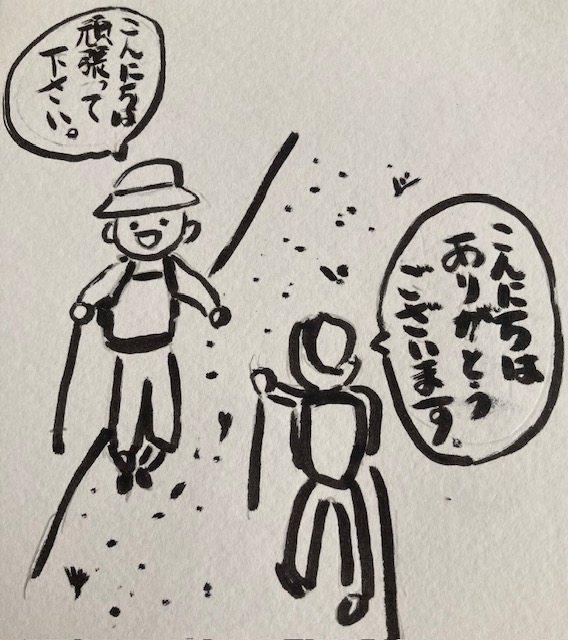 こんにちは
頑張って
下さい。
こんにちは
ありがとう
ございます。